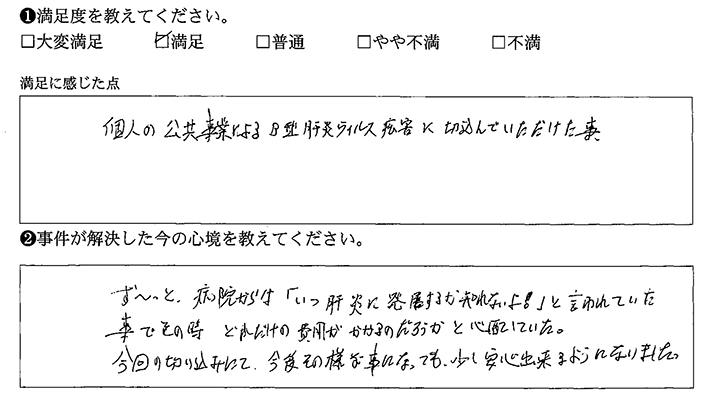 ❶満足度を教えてください。
□大変満足 ☑満足 □普通 □やや不満 □不満
満足に感じた点
個人の公共事業によるB型肝炎ウィルス被害に切込んでいただけた事
❷事件が解決した今の心境を教えてください。
ず〜っと、病院からは「いつ肝炎に発展するか知れないよ!!」と言われていた
事でその時 どれだけの費用がかかるのだろうかと心配していた。
今回の切り込みにて、今後その様な事になっても、少し安心出来るようになりました。